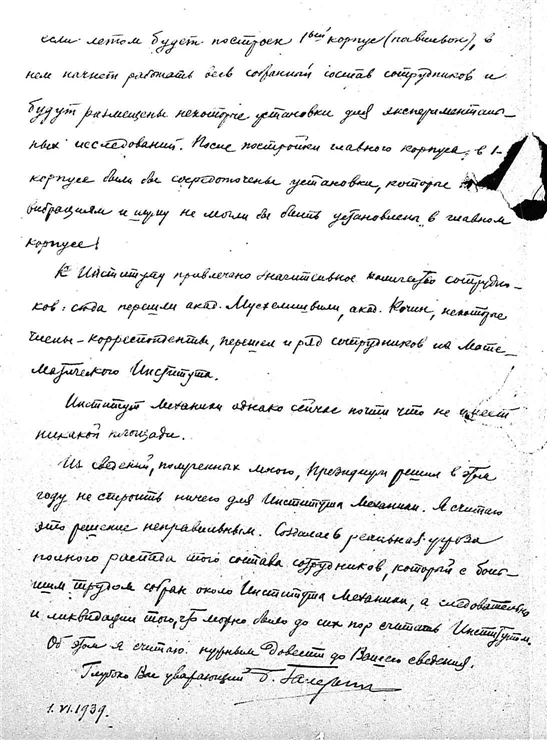 если летом будет построен 1ый корпус (павильон), в
нем начнет работать весь собранный состав сотрудников и
будут размещены некоторые установки для эксперименталь-
ных исследований. После постройки главного корпуса, в 1-
корпусе были бы сосредоточены установки, которые
вибрациям и шуму не могли бы быть установлены в главном
корпусе!
К Институту привлечено значительное количество сотрудни-
ков: сюда перешли акад. Мусхелишвили, акад. Кочин, некоторые
члены-корреспонденты, перешел и ряд сотрудников из Мате-
матического Института.
Институт Механики однако сейчас почти что не имеет
никакой площади.
Из сведений, полученных мною, Президиум решил в этом
году не строить ничего для Института Механики. Я считаю
это решение неправильным. Создалась реальная угроза
полного распада того состава сотрудников, который с боль-
шим трудом собран около Института Механики, а следовательно
и ликвидации того, что можно было до сих пор считать Институтом.
Об этом я считаю нужным довести до Вашего сведения.
Глубоко Вас уважающий Б. Галеркин
1.VI.1939.